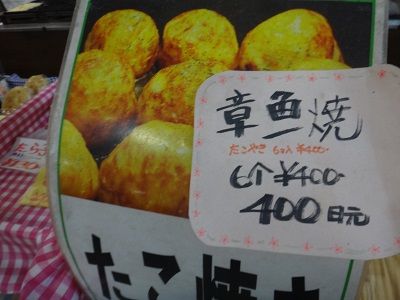 章魚焼
たこやき 6コ入 ¥400-
6个¥400-
400日元
たこ焼き